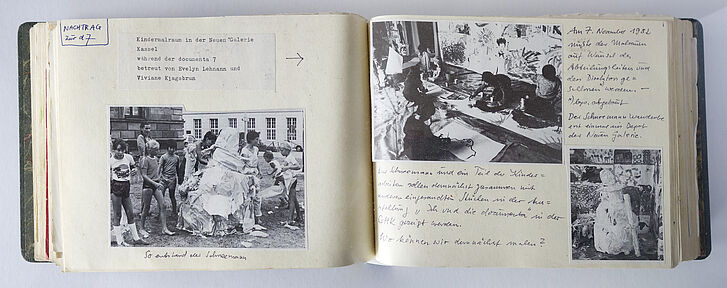 NACHTRAG
zur d7
Kindermalraum in der Neuen Galerie
Kassel
während der documenta 7
betreut von Evelyn Lehmann und
Viviane Klagsbrun
So entstand der Schneemann
Am 7. November 1982
mußte der Malraum
auf Wunsch des
Abteilungsleiters und
des Direktors ge=
schlossen werden. —
abgebaut
Der Schneemann wanderte
erst einmal ins Depot
der Neuen Galerie.
Der Schneemann und ein Teil der Kinder=
arbeiten sollen demnächst zusammen mit
anderen eingesandten in der Aus=
stellung " Ich und die documenta" in der
gezeigt werden.
Wo können wir demnächst malen?